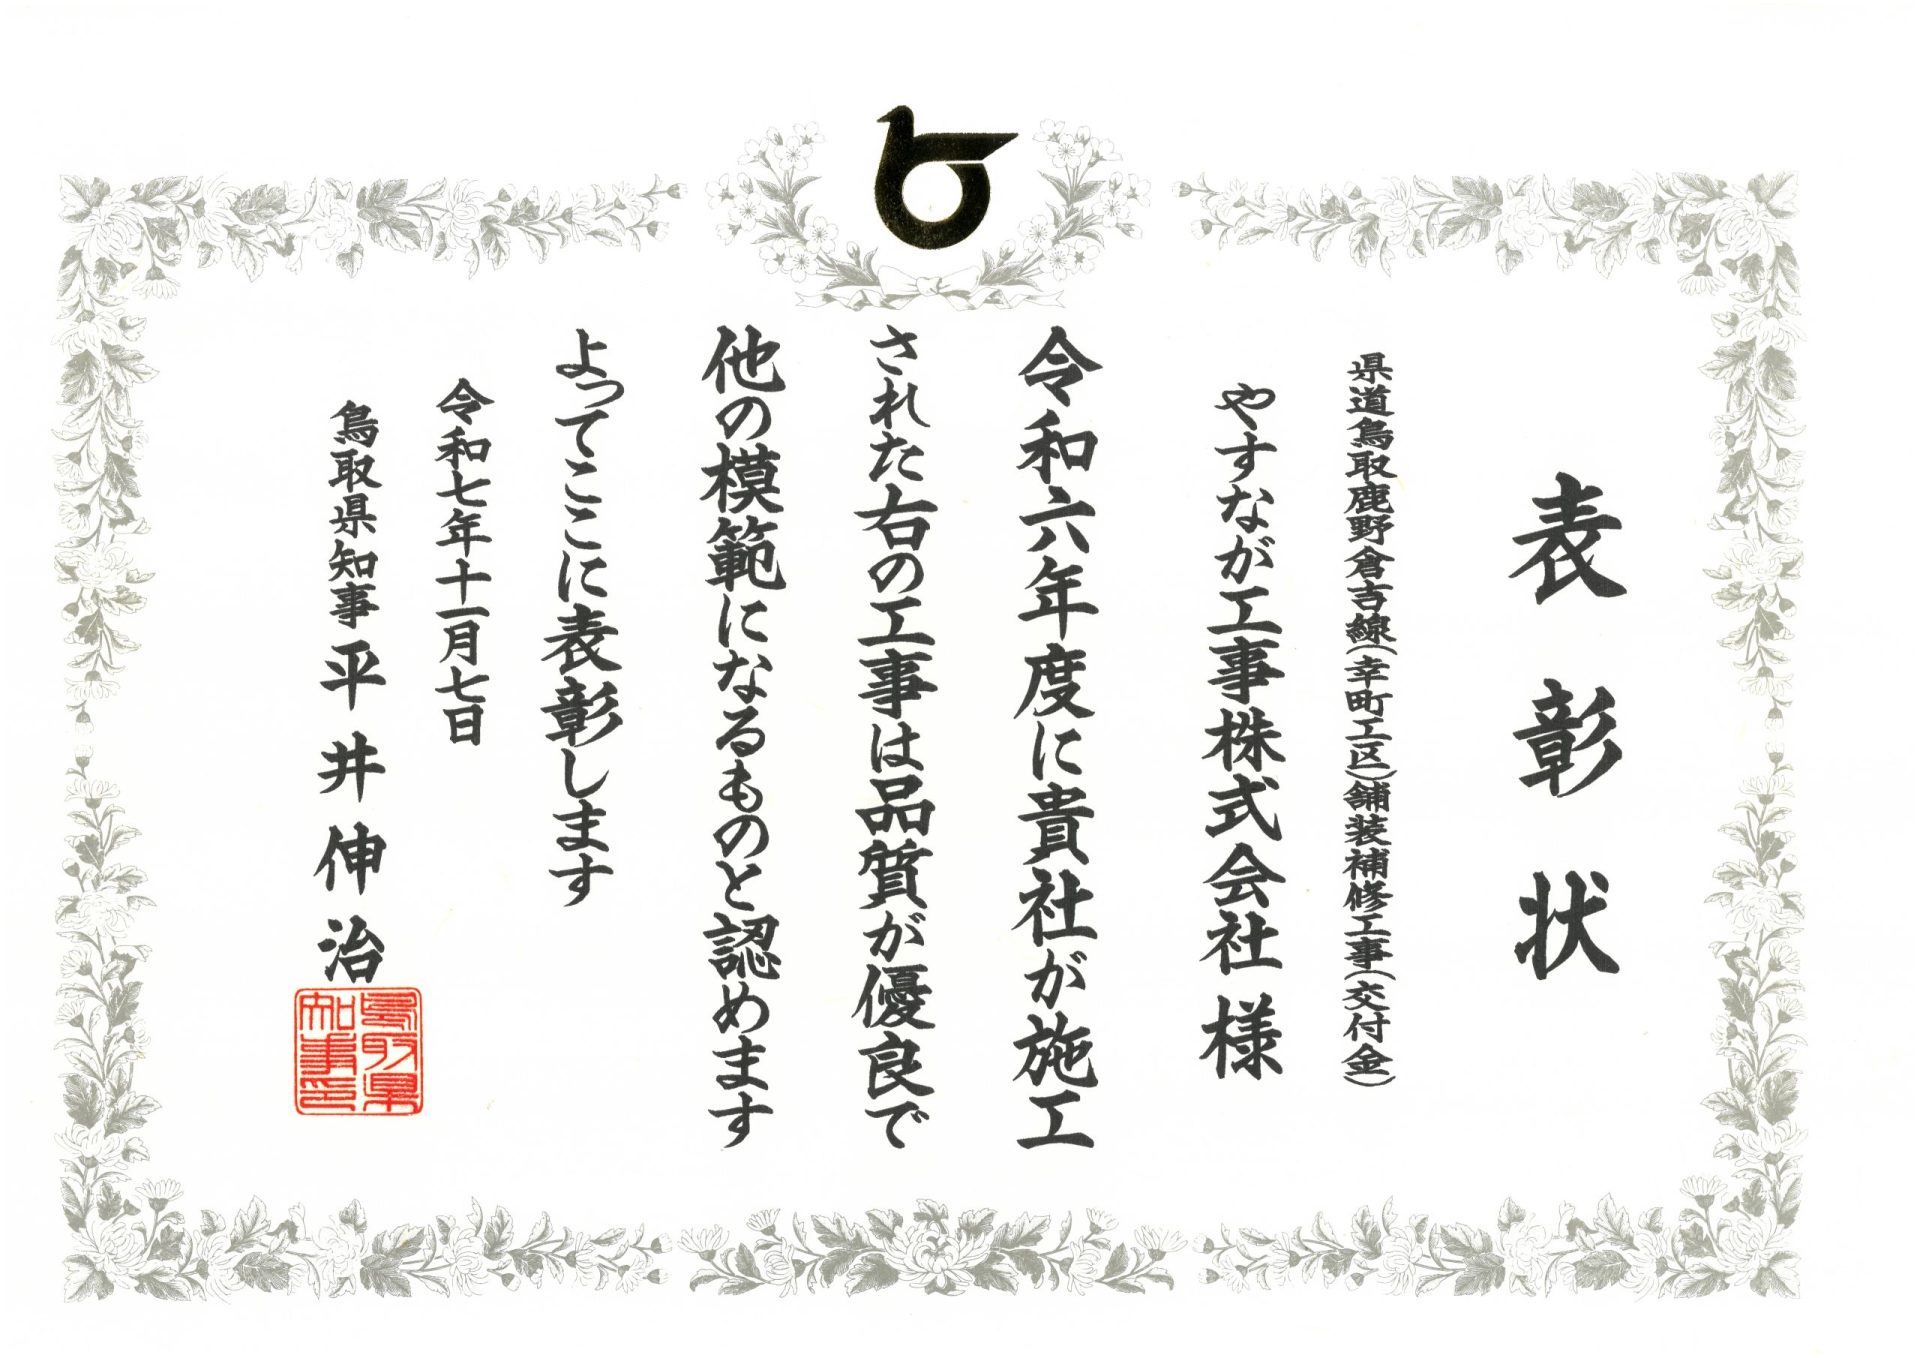 表彰状
県道鳥取鹿野倉吉線(幸町工区)舗装補修工事(交付金)
やすなが工事株式会社 様
令和六年度に貴社が施工
された右の工事は品質が優良で
他の模範になるものと認めます
よってここに表彰します
令和七年十一月七日
鳥取県知事 平井伸治
鳥取県
知事印